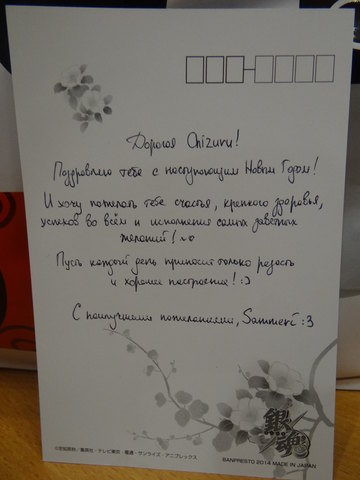 Дорогая Chizuru!
Поздравляю тебя с наступающим Новым Годом!
И хочу пожелать тебе счастья, крепкого здоровья,
успехов во всём и исполнения самых заветных
желаний!
Пусть каждый день приносит только радость
и хорошее настроение! :)
С наилучшими пожеланиями, Sammeri :3
銀魂
BANPRESTO 2014 MADE IN JAPAN
©空知英秋/集英社・テレビ東京・電通・サンライズ・アニプレックス